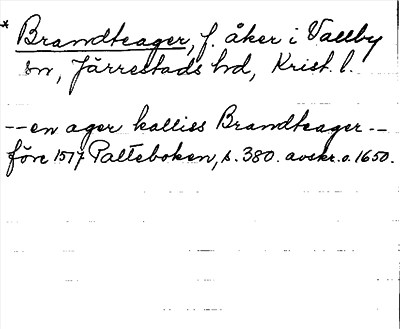 * Brandteager, f. åker i Vallby
sn, Järrestads hd, Krist. l.
-- en ager kalles Brandteager --
före 1517 Palteboken, s. 380. avskr. o. 1650.